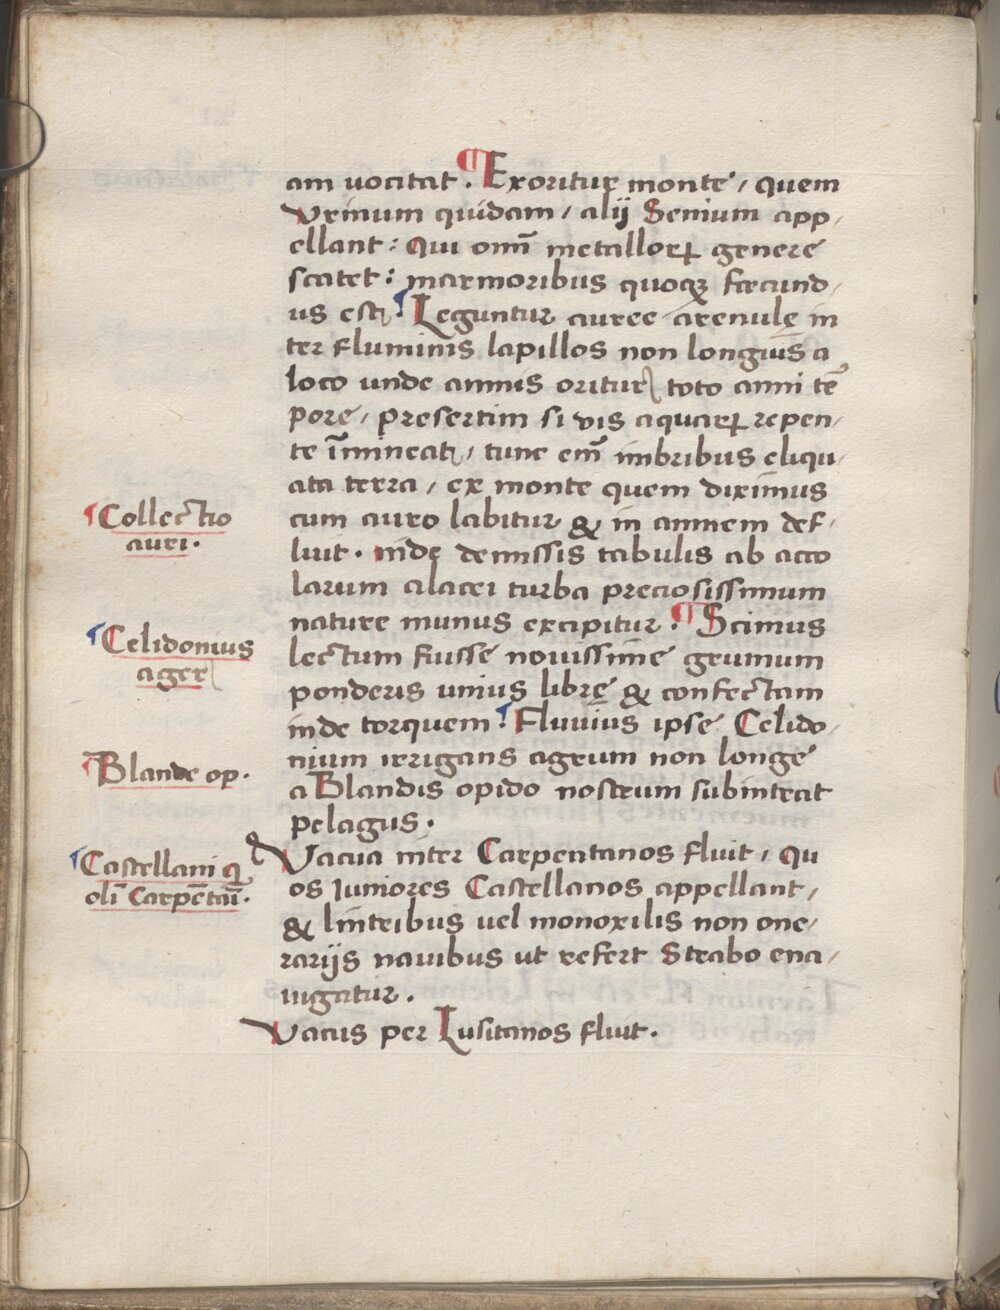 am uocitat. ¶ Exoritur monte / quem
Vrinum quidam / alij Senium app/
ellant: Qui omĩ metalloꝝ genere
scatet: marmoribus quoqꝫ fœcund/
us est. Leguntur auree arenulę in
ter fluminis lapillos non longius a
loco unde amnis oritur toto anni tẽ
pore / presertim si vis aquaꝝ repen/
te ĩmineat / tunc em̃ imbribus eliqu/
ata terra / ex monte quem diximus
cum auro labitur & in amnem def/
luit. inde demissis tabulis ab acco
larum alacri turba preciosissimum
nature munus excipitur. ¶ Scimus
lectum fuisse nouissime grumum
ponderis unius librę & confectam
inde torquem. Fluuius ipse Celido/
nium irrigans agrum non longe
a Blandis opido nostrum subintrat
pelagus.
Vacua inter Carpentanos fluit / Qu
os Iuniores Castellanos appellant /
& lintribus uel monoxilis non one/
rarijs nauibus ut refert Strabo ena/
uigatur.
Vacus per Lusitanos fluit.
Collectio
auri.
Celidonius
ager
Blande op.
Castellani q
oli Carpẽtaũ.